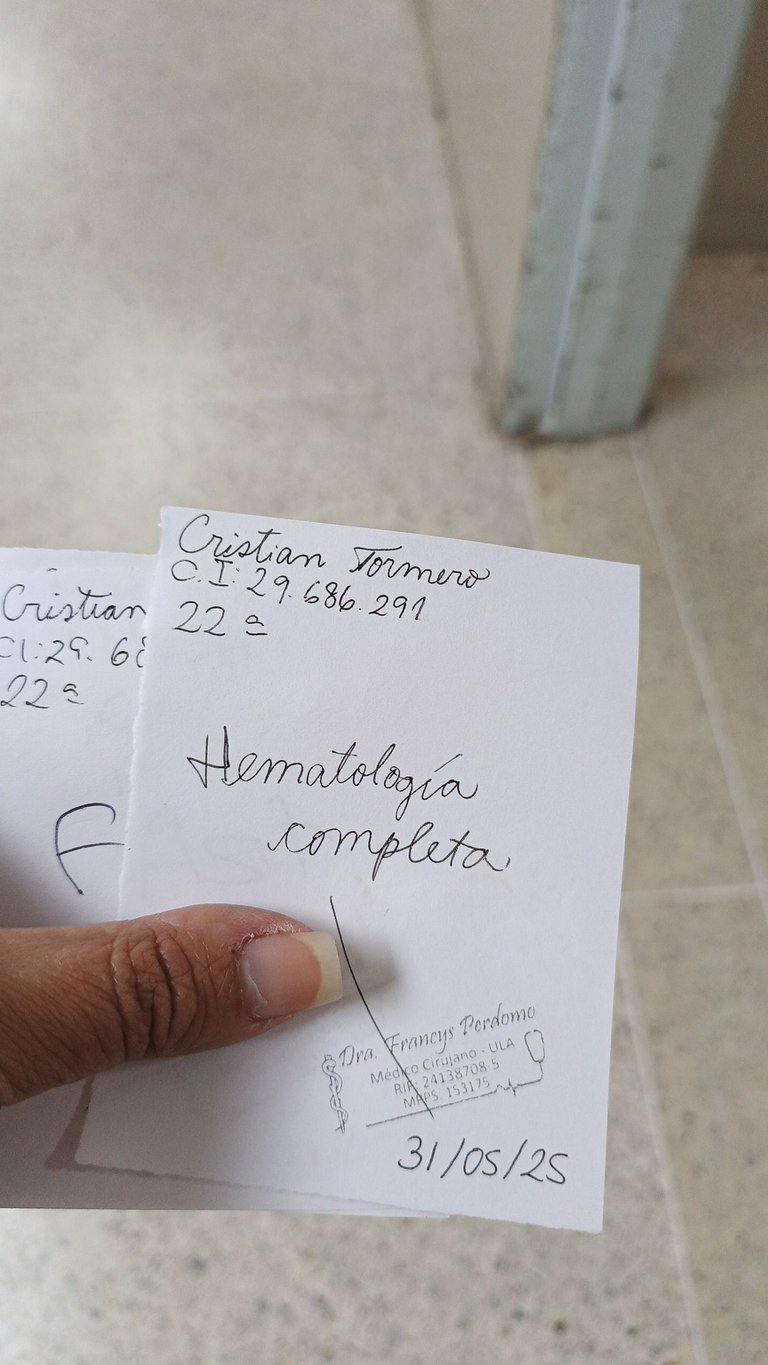 Cristian Tormero
C.I: 29.686.291
22 a
Hematología
completa
Dra. Francys Perdomo
Médico Cirujano - ULA
RIF: 24138708-5
MPPS: 153175
31/05/25
Cristian
CI: 29. 68
22 a
F